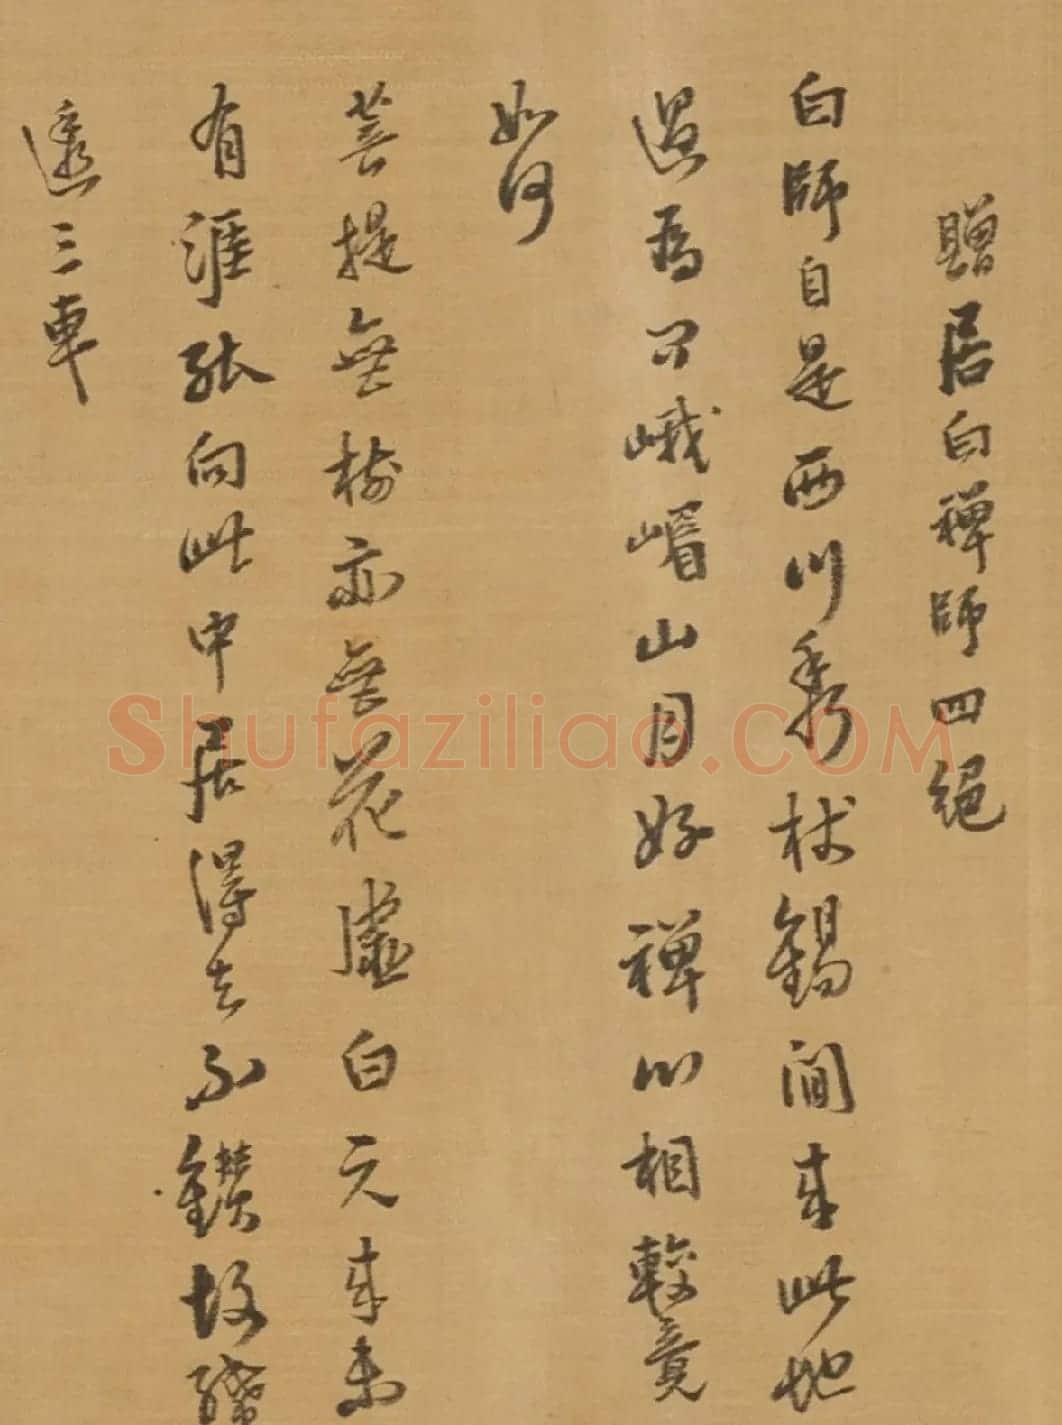 贈居白禪師四絕
白師自是西川秀杖錫閒来此地
過為口峨嵋山月好禪心相較竟
如何
菩提無樹亦無花虛白元来未
有涯能向此中居得去不鑽故紙
透三車
Shufaziliao.COM